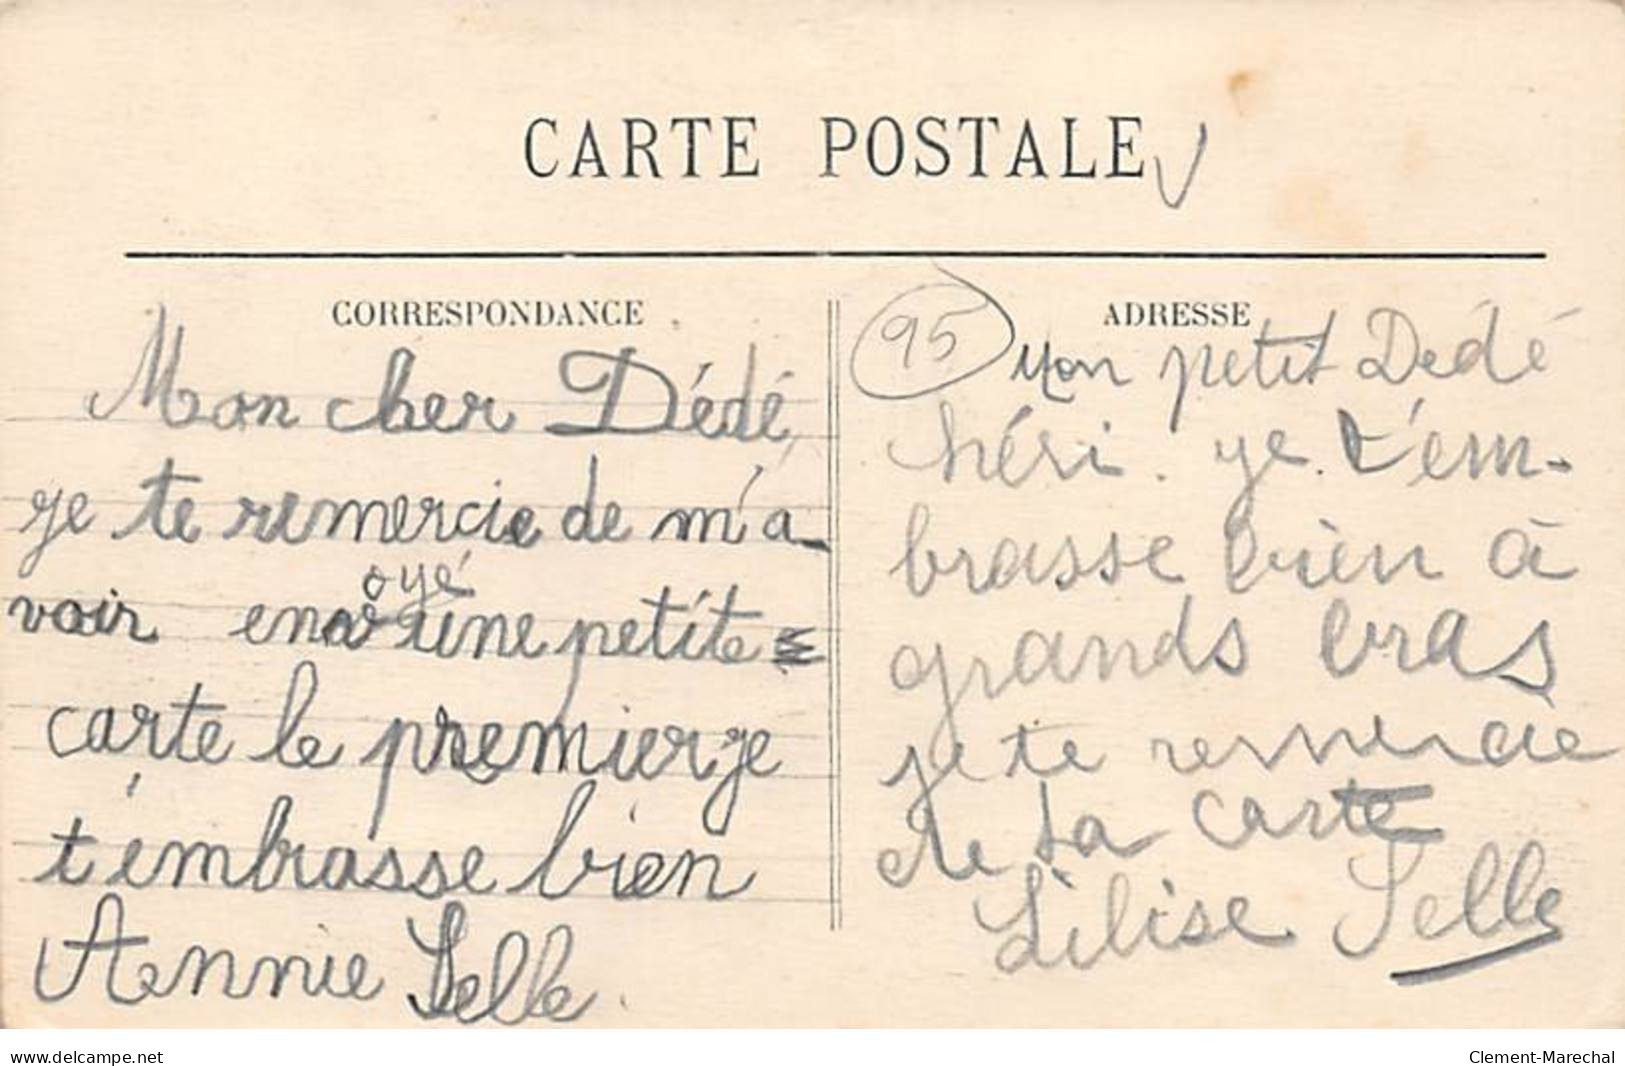 CARTE POSTALE
CORRESPONDANCE
Mon cher Dédé
je te remercie de m'a-
oyé
voir env une petite
carte le premier je
t'émbrasse bien
Annie Selle.
95
ADRESSE
Mon petit Dédé
héri. je t'em-
brasse bien à
grands bras
je te remercie
de ta carte
Lilise Selle
www.delcampe.net
Clement-Marechal